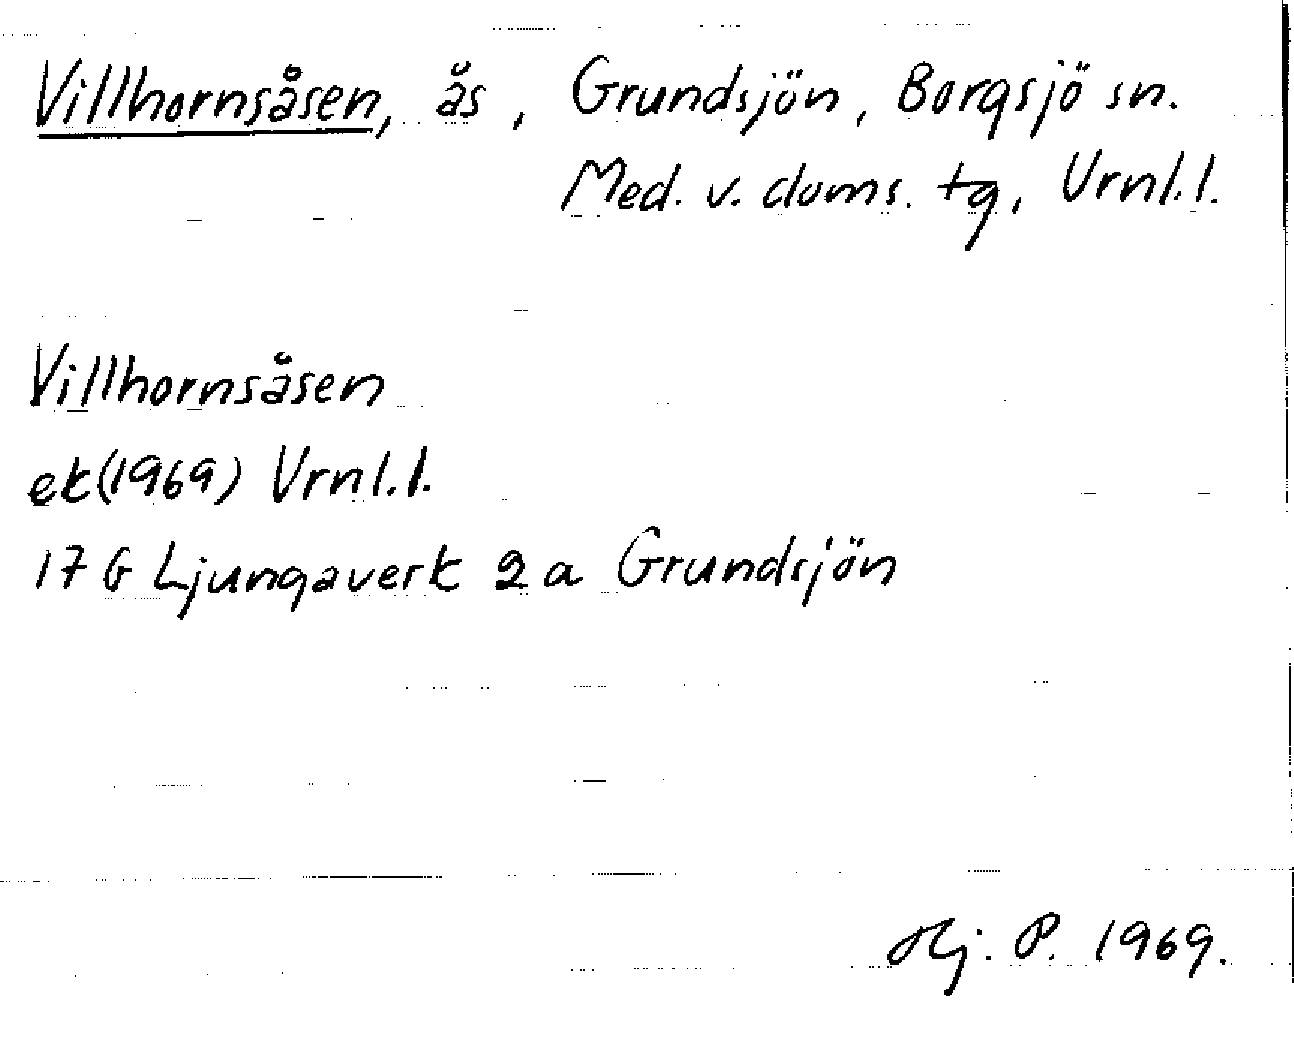 Villhornsåsen, ås, Grundsjön, Borgsjö sn.
Med. v. doms. tg, Vrnl. l.
Villhornsåsen
ek(1969) Vrnl. l.
17 G Ljungaverk 2 a Grundsjön
Hj. P. 1969.